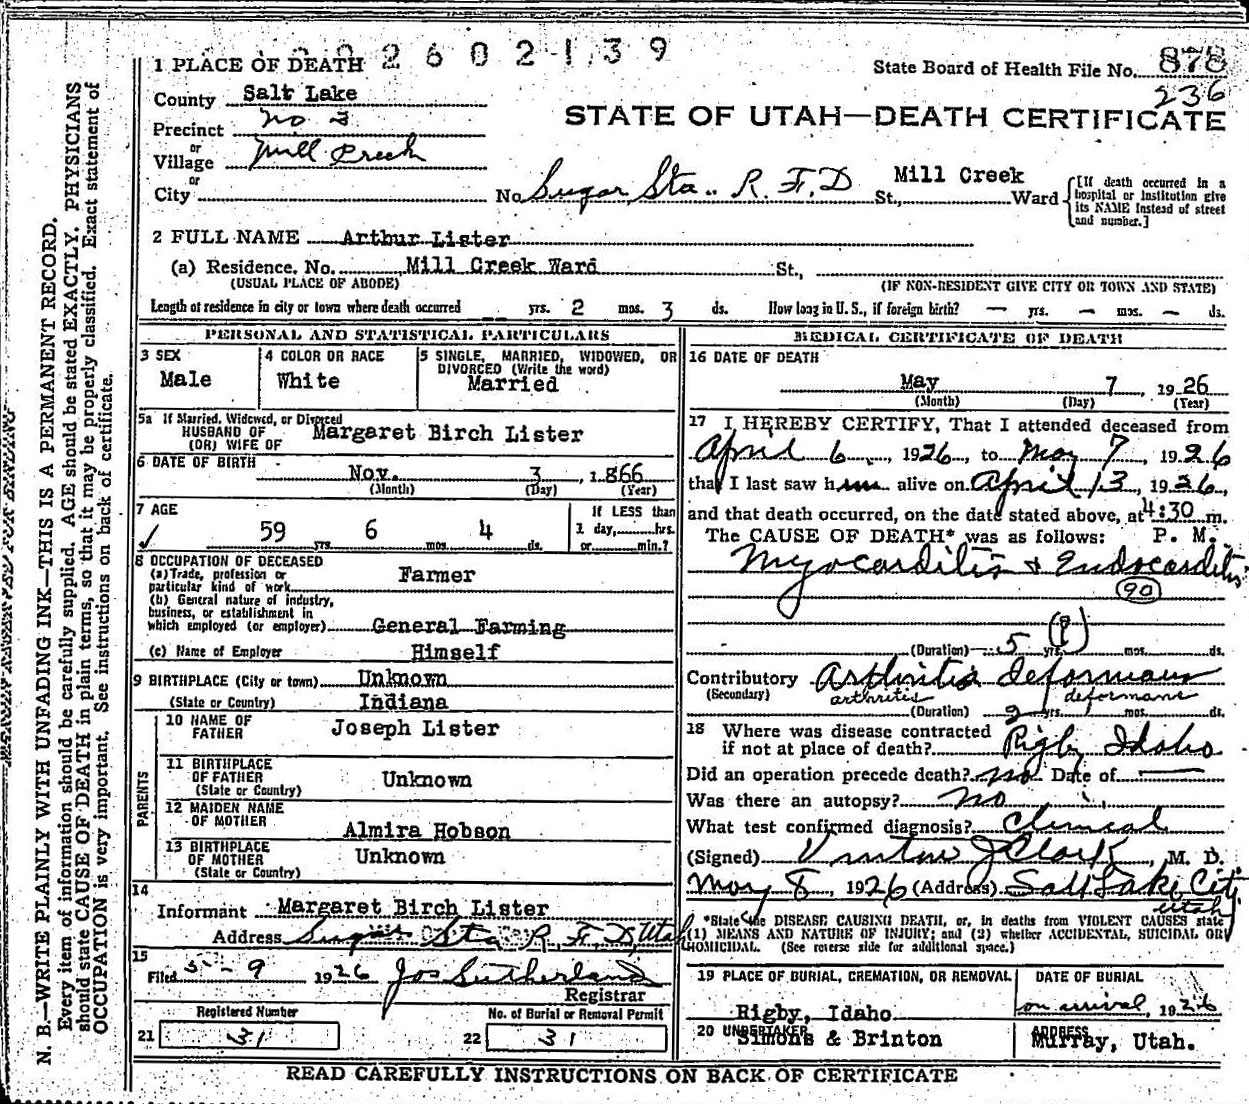 2602139
1 PLACE OF DEATH
State Board of Health File No. 878
236
County Salt Lake
STATE OF UTAH—DEATH CERTIFICATE
Precinct No 3
or
Village Mill Creek
or
City
No. Sugar Sta.. R. F. D St., Mill Creek Ward
[If death occurred in a hospital or institution give its NAME instead of street and number.]
2 FULL NAME Arthur Lister
(a) Residence. No. Mill Creek Ward St.,
(USUAL PLACE OF ABODE) (IF NON-RESIDENT GIVE CITY OR TOWN AND STATE)
Length of residence in city or town where death occurred — yrs. 2 mos. 3 ds. How long in U. S., if foreign birth? — yrs. — mos. — ds.
PERSONAL AND STATISTICAL PARTICULARS
3 SEX
Male
4 COLOR OR RACE
White
5 SINGLE, MARRIED, WIDOWED, OR
DIVORCED (Write the word)
Married
5a If Married, Widowed, or Divorced
HUSBAND OF
(OR) WIFE OF
Margaret Birch Lister
6 DATE OF BIRTH
Nov. 3, 1866
(Month) (Day) (Year)
7 AGE
59 yrs. 6 mos. 4 ds.
If LESS than
1 day, hrs.
or min.?
8 OCCUPATION OF DECEASED
(a) Trade, profession or
particular kind of work Farmer
(b) General nature of industry,
business, or establishment in
which employed (or employer) General Farming
(c) Name of Employer Himself
9 BIRTHPLACE (City or town) Unknown
(State or Country) Indiana
PARENTS
10 NAME OF
FATHER
Joseph Lister
11 BIRTHPLACE
OF FATHER
(State or Country)
Unknown
12 MAIDEN NAME
OF MOTHER
Almira Hobson
13 BIRTHPLACE
OF MOTHER
(State or Country)
Unknown
14
Informant Margaret Birch Lister
Address Sugar Sta R. F. D, Utah
15
Filed 5-9 1926 Jos Sutherland
Registrar
Registered Number
21 31
No. of Burial or Removal Permit
22 31
MEDICAL CERTIFICATE OF DEATH
16 DATE OF DEATH
May 7, 1926
(Month) (Day) (Year)
17 I HEREBY CERTIFY, That I attended deceased from
April 6, 1926, to May 7, 1926
that I last saw him alive on April 13, 1926,
and that death occurred, on the date stated above, at 4:30 m.
The CAUSE OF DEATH* was as follows: P. M.
Myocarditis & Endocarditis
90
(?)
(Duration) 5 yrs. mos. ds.
Contributory Arthritis deformans
(Secondary) arthritis deformans
(Duration) 9 yrs. mos. ds.
18 Where was disease contracted
if not at place of death? Rigby Idaho
Did an operation precede death? no Date of —
Was there an autopsy? no
What test confirmed diagnosis? Clinical
(Signed) Clark, M. D.
May 8, 1926 (Address) Salt Lake City
Utah
*State the DISEASE CAUSING DEATH, or, in deaths from VIOLENT CAUSES state
(1) MEANS AND NATURE OF INJURY; and (2) whether ACCIDENTAL, SUICIDAL OR
HOMICIDAL. (See reverse side for additional space.)
19 PLACE OF BURIAL, CREMATION, OR REMOVAL
Rigby, Idaho
DATE OF BURIAL
on arrival, 1926
20 UNDERTAKER
Simons & Brinton
ADDRESS
Murray, Utah.
READ CAREFULLY INSTRUCTIONS ON BACK OF CERTIFICATE
N. B.—WRITE PLAINLY WITH UNFADING INK—THIS IS A PERMANENT RECORD.
Every item of information should be carefully supplied. AGE should be stated EXACTLY. PHYSICIANS
should state CAUSE OF DEATH in plain terms, so that it may be properly classified. Exact statement of
OCCUPATION is very important. See instructions on back of certificate.